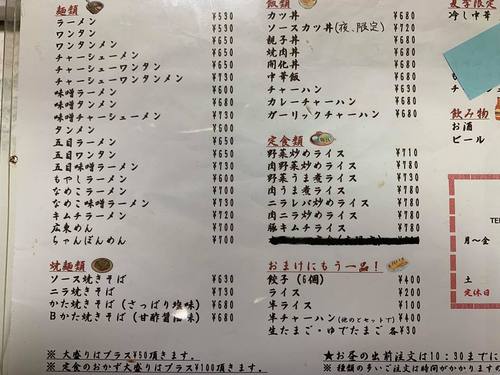 麺類
ラーメン ¥530
ワンタン ¥530
ワンタンメン ¥650
チャーシューメン ¥650
チャーシューワンタン ¥650
チャーシューワンタンメン ¥730
味噌ラーメン ¥600
味噌チャーシューメン ¥730
タンメン ¥600
五目ラーメン ¥650
五目ワンタン ¥650
五目味噌ラーメン ¥730
もやしラーメン ¥600
なめこラーメン ¥650
なめこ味噌ラーメン ¥730
キムチラーメン ¥720
広東めん ¥700
ちゃんぽんめん ¥700
焼麺類
ソース焼きそば ¥630
ニラ焼きそば ¥730
かた焼きそば (さっぱり塩味) ¥680
Bかた焼きそば (甘酢醤油味) ¥680
※ 大盛りはプラス¥50頂きます。
※ 定食のおかず大盛りはプラス¥100頂きます。
飯類
カツ丼 ¥680
ソースカツ丼(夜、限定) ¥720
親子丼 ¥680
焼肉丼 ¥680
開化丼 ¥680
中華飯 ¥680
チャーハン ¥630
カレーチャーハン ¥680
ガーリックチャーハン ¥680
定食類
野菜炒めライス ¥710
肉野菜炒めライス ¥780
野菜うま煮ライス ¥730
肉うま煮ライス ¥780
ニラレバ炒めライス ¥780
肉ニラ炒めライス ¥780
豚キムチライス ¥780
おまけにもう一品!
餃子 (6個) ¥400
ライス ¥200
半ライス ¥100
半チャーハン(他のとセットで) ¥400
生たまご・ゆでたまご 各¥30
夏季限定
冷し中華
飲み物
お酒
ビール
TEL
月〜金
土
定休日
★お昼の出前注文は10:30までに
※ 種類の多いご注文は時間がかかります